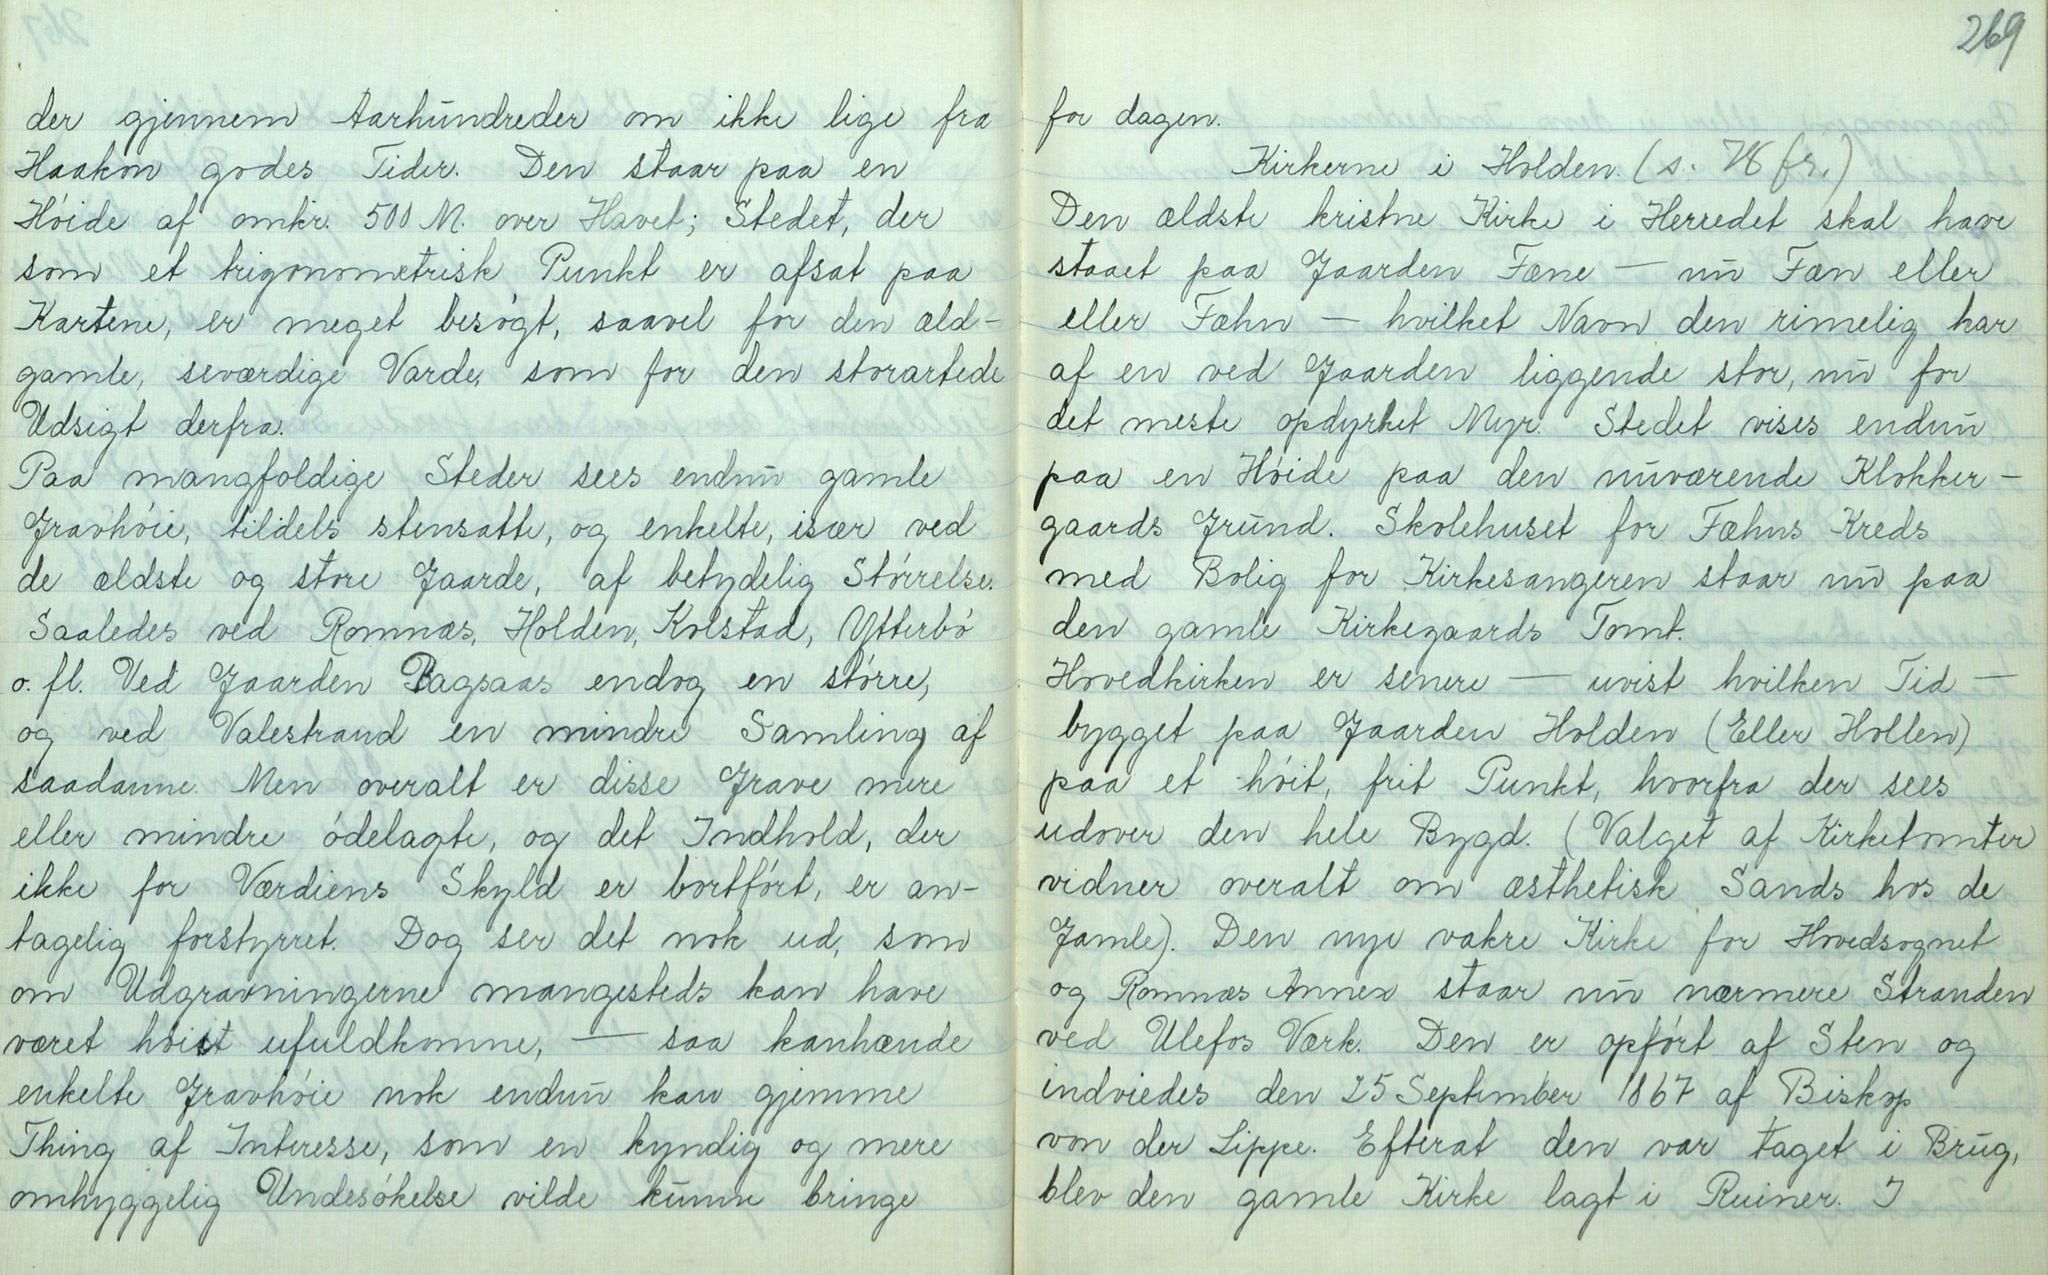 der gjennem Aarhundreder om ikke lige fra
Haakon godes Tider. Den staar paa en
Høide af omkr. 500 M. over Havet; Stedet, der
som et trigonometrisk Punkt er afsat paa
Kartene, er meget besøgt, saavel for den æld-
gamle, seværdige Varde, som for den storartede
Udsigt derfra.
Paa mangfoldige Steder sees endnu gamle
Gravhøie, tildels stensatte, og enkelte, især ved
de ældste og store Gaarde, af betydelig Størrelse.
Saaledes ved Romnæs, Holden, Kolstad, Ytterbø
o. fl. Ved Gaarden Bagsaas endog en større,
og ved Valestrand en mindre Samling af
saadanne. Men overalt er disse Grave mere
eller mindre ødelagte, og det Indhold, der
ikke for Værdiens Skyld er bortført, er an-
tagelig forstyrret. Dog ser det nok ud, som
om Udgravningerne mangesteds kan have
været høist ufuldkomne, — saa kanhænde
enkelte Gravhøie nok endnu kan gjemme
Thing af Interesse, som en kyndig og mere
omhyggelig Undesøkelse vilde kunne bringe
269
for dagen.
Kirkerne i Holden. (s. 78 fr.)
Den ældste kristne Kirke i Herredet skal have
staaet paa Gaarden Fæne — nu Fæn eller
eller Fæhn — hvilket Navn den rimelig har
af en ved Gaarden liggende stor, nu for
det meste opdyrket Myr. Stedet vises endnu
paa en Høide paa den nuværende Klokker-
gaards Grund. Skolehuset for Fæhns Kreds
med Bolig for Kirkesangeren staar nu paa
den gamle Kirkegaards Tomt.
Hovedkirken er senere — uvist hvilken Tid —
bygget paa Gaarden Holden (Eller Hollen)
paa et høit, frit Punkt, hvorfra der sees
udover den hele Bygd. (Valget af Kirketomter
vidner overalt om æsthetisk Sands hos de
Gamle). Den nye vakre Kirke for Hovedsognet
og Romnæs Annex staar nu nærmere Stranden
ved Ulefos Værk. Den er opført af Sten og
indviedes den 25 September 1867 af Biskop
von der Lippe. Efterat den var taget i Brug,
blev den gamle Kirke lagt i Ruiner. I